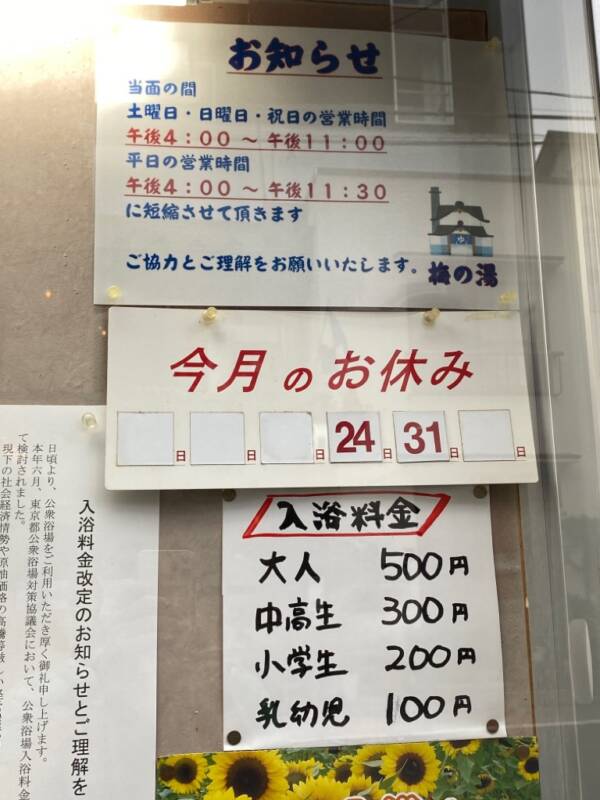 お知らせ
当面の間
土曜日・日曜日・祝日の営業時間
午後4：00 ～ 午後11：00
平日の営業時間
午後4：00 ～ 午後11：30
に短縮させて頂きます
ご協力とご理解をお願いいたします。
ゆ
梅の湯
今月のお休み
日 日 日 24日 31日 日
入浴料金
大人 500円
中高生 300円
小学生 200円
乳幼児 100円
入浴料金改定のお知らせとご理解を
日頃より、公衆浴場をご利用いただき厚く御礼申し上げます。
本年六月、東京都公衆浴場対策協議会において、公衆浴場入浴料金
て検討されました。
現下の社会経済情勢や原油価格の高騰等